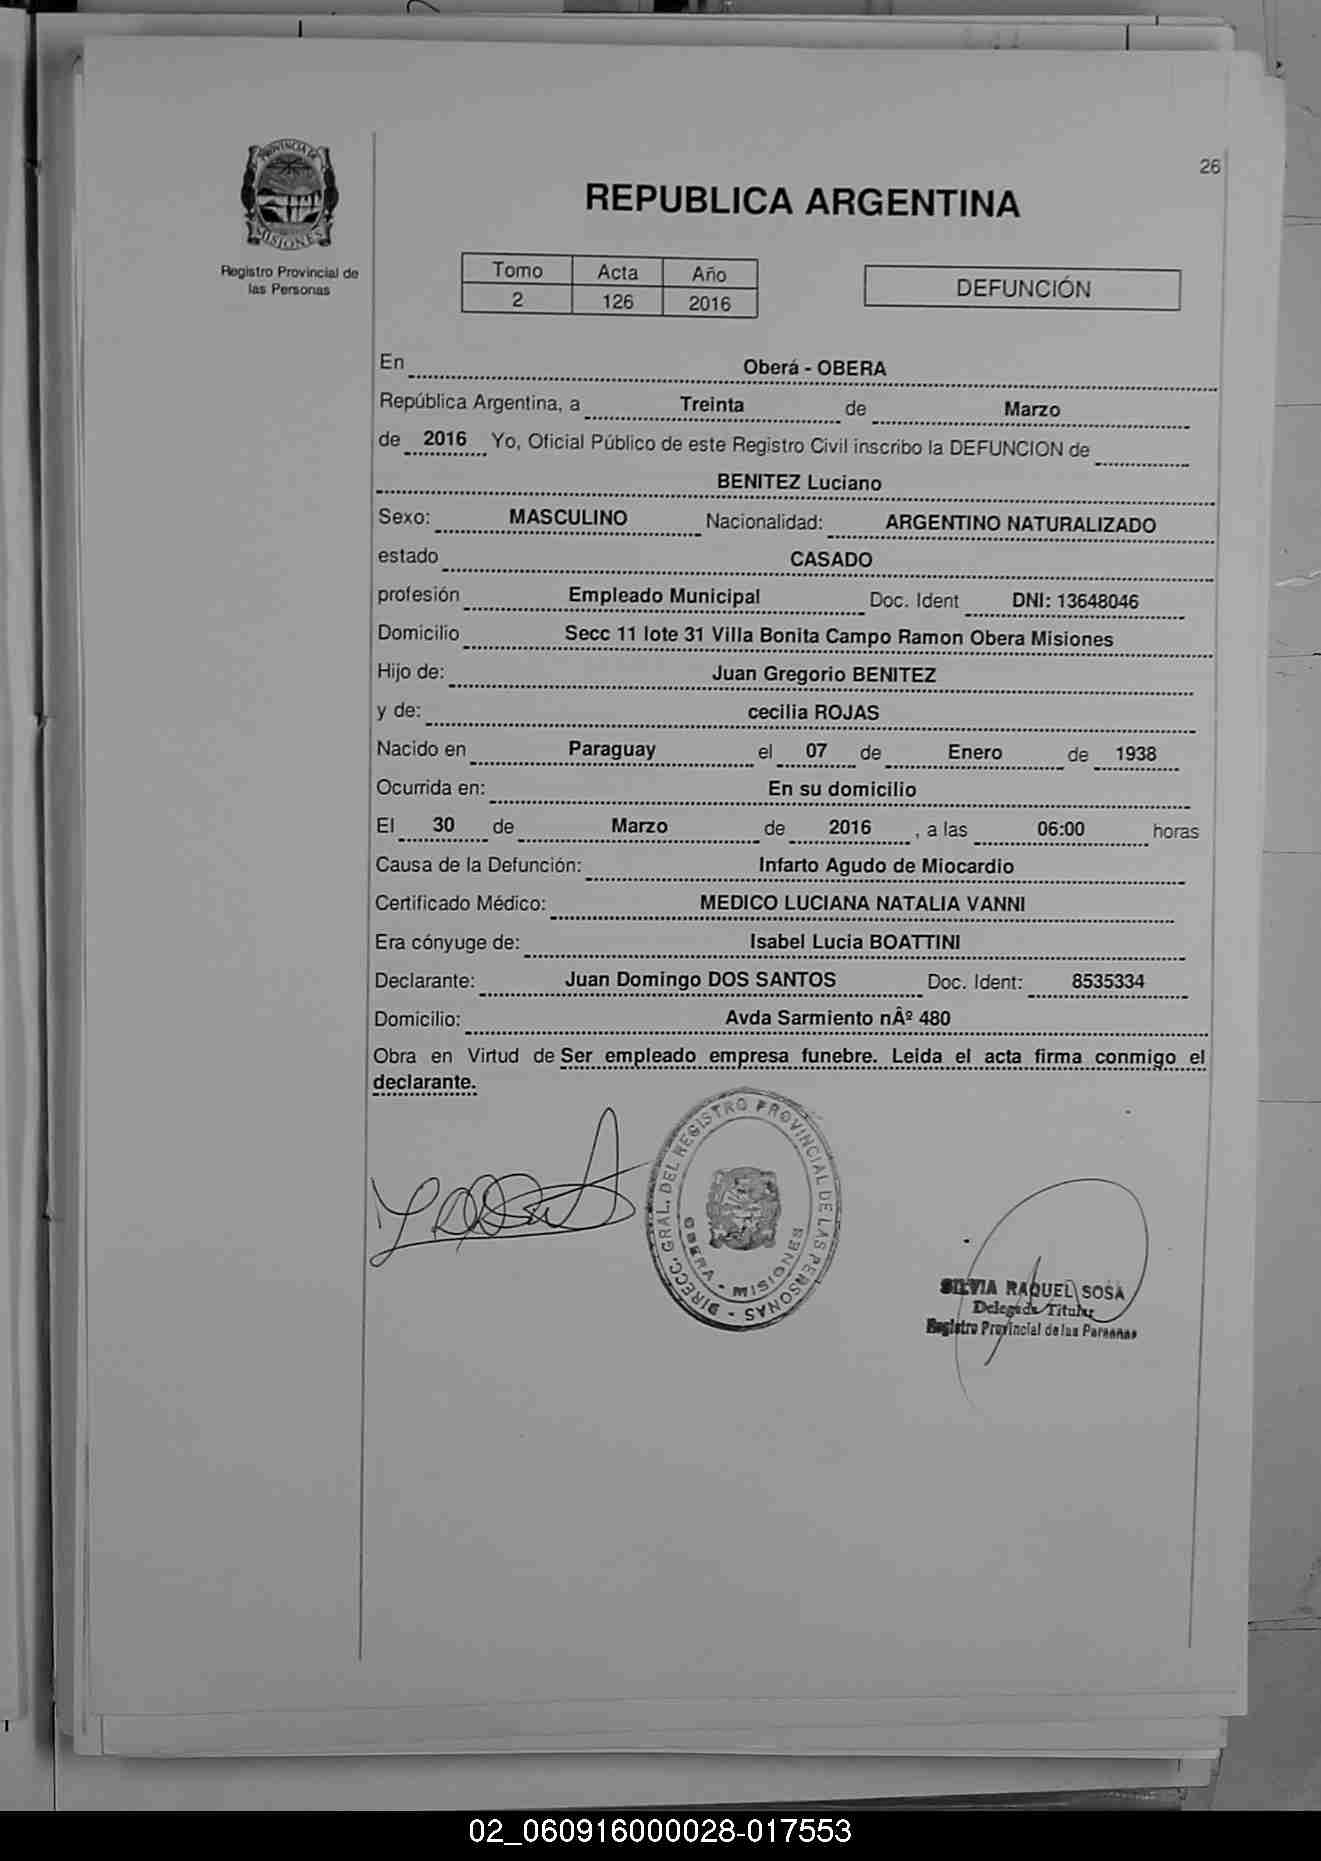 26
PROVINCIA DE
MISIONES
Registro Provincial de
las Personas
REPUBLICA ARGENTINA
Tomo Acta Año
2 126 2016
DEFUNCIÓN
En Oberá - OBERA
República Argentina, a Treinta de Marzo
de 2016 Yo, Oficial Público de este Registro Civil inscribo la DEFUNCION de
BENITEZ Luciano
Sexo: MASCULINO Nacionalidad: ARGENTINO NATURALIZADO
estado CASADO
profesión Empleado Municipal Doc. Ident DNI: 13648046
Domicilio Secc 11 lote 31 Villa Bonita Campo Ramon Obera Misiones
Hijo de: Juan Gregorio BENITEZ
y de: cecilia ROJAS
Nacido en Paraguay el 07 de Enero de 1938
Ocurrida en: En su domicilio
El 30 de Marzo de 2016 , a las 06:00 horas
Causa de la Defunción: Infarto Agudo de Miocardio
Certificado Médico: MEDICO LUCIANA NATALIA VANNI
Era cónyuge de: Isabel Lucia BOATTINI
Declarante: Juan Domingo DOS SANTOS Doc. Ident: 8535334
Domicilio: Avda Sarmiento nÂº 480
Obra en Virtud de Ser empleado empresa funebre. Leida el acta firma conmigo el
declarante.
DIRECC. GRAL. DEL REGISTRO PROVINCIAL DE LAS PERSONAS -
OBERA - MISIONES
SILVIA RAQUEL SOSA
Delegada Titular
Registro Provincial de las Personas
02_060916000028-017553